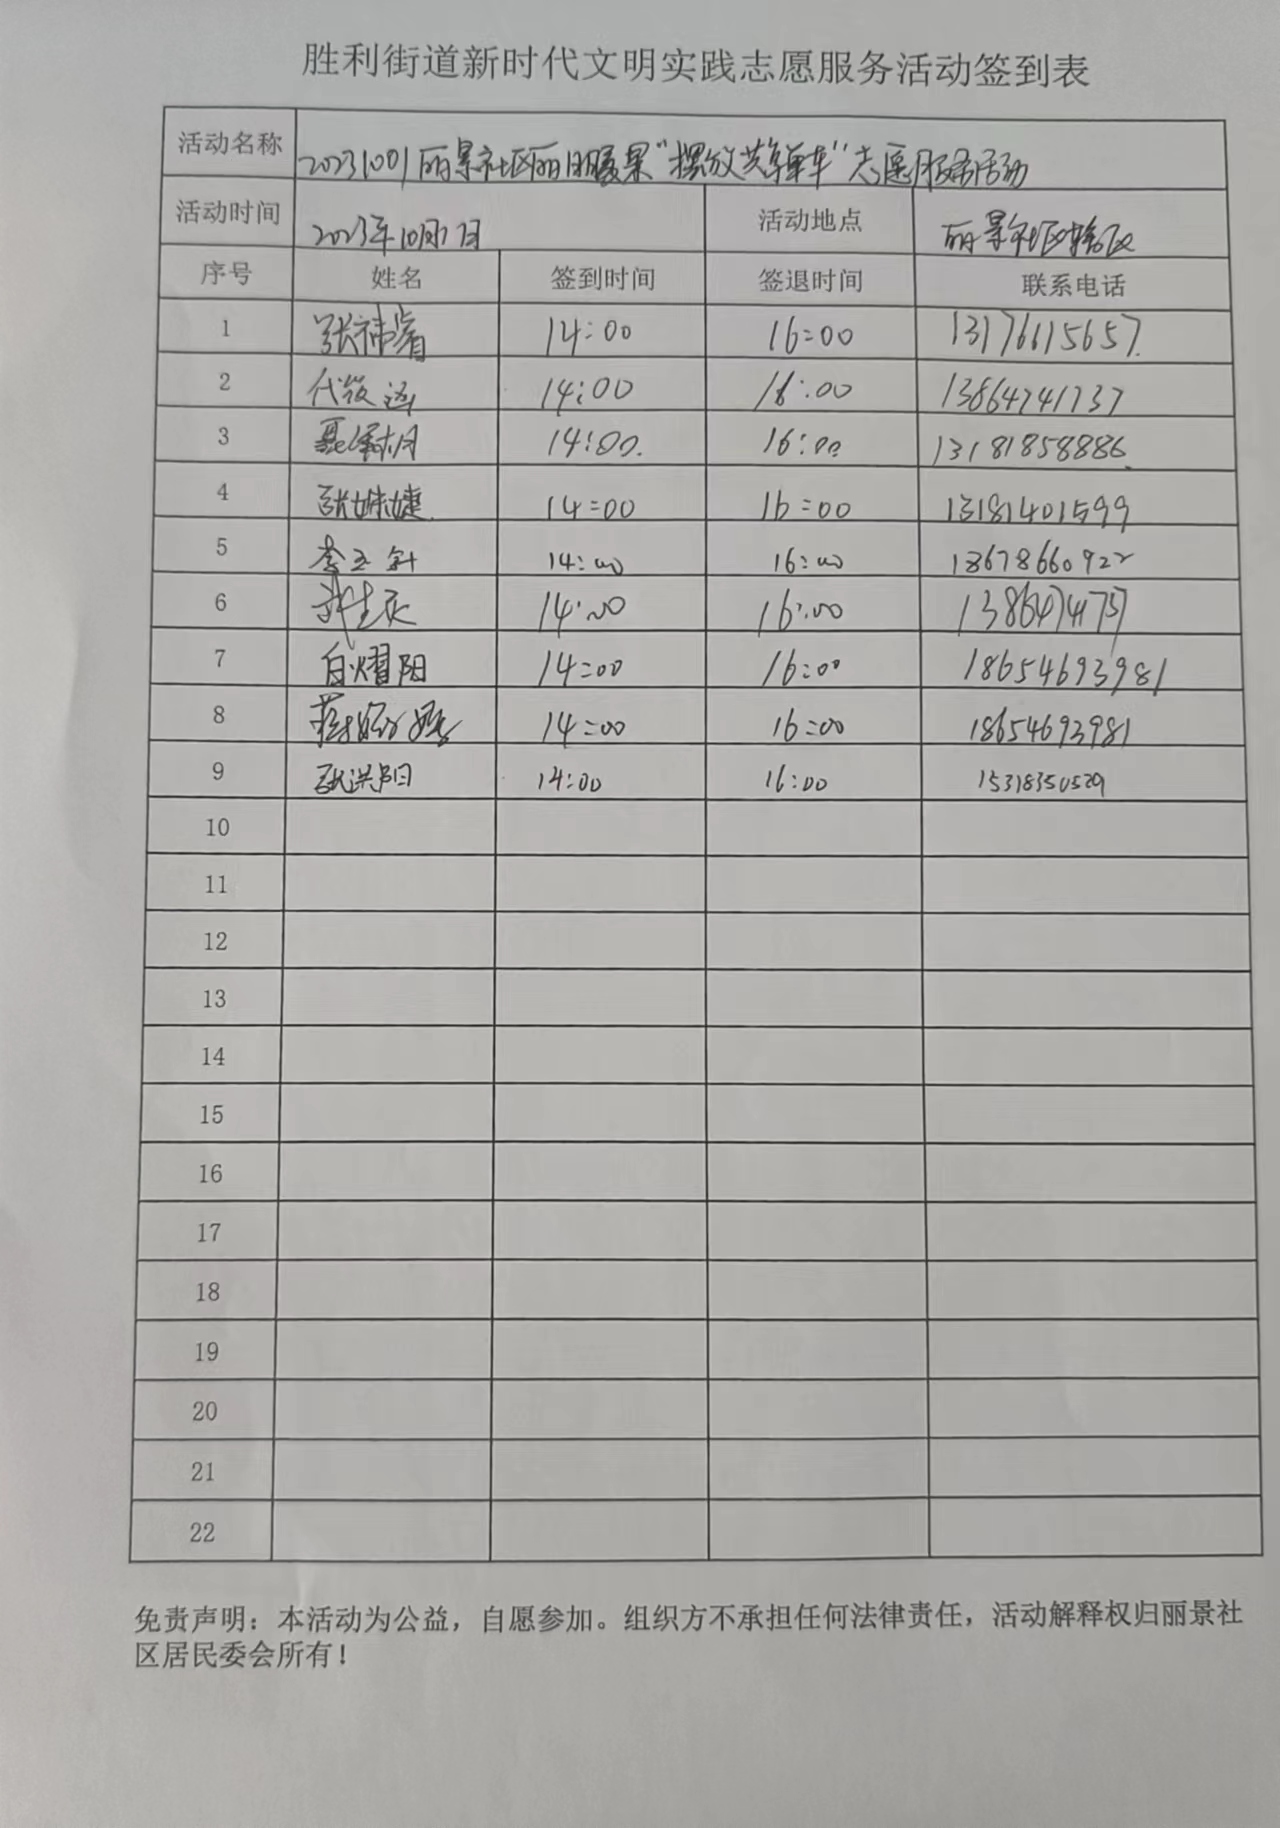 胜利街道新时代文明实践志愿服务活动签到表
活动名称 20231001丽景社区丽日暖景“摆放共享单车”志愿服务活动
活动时间 2023年10月1日 活动地点 丽景社区辖区
序号 姓名 签到时间 签退时间 联系电话
1 张祎 14:00 16:00 13176615657
2 代筱涵 14:00 16:00 13864741737
3 14:00 16:00 13181858886
4 张姝婕 14:00 16:00 13181401599
5 李玉针 14:00 16:00 18678660922
6 14:00 16:00
7 白熠阳 14:00 16:00 18654693981
8 14:00 16:00 18654693981
9 张洪阳 14:00 16:00 15318350529
10
11
12
13
14
15
16
17
18
19
20
21
22
免责声明：本活动为公益，自愿参加。组织方不承担任何法律责任，活动解释权归丽景社
区居民委会所有！